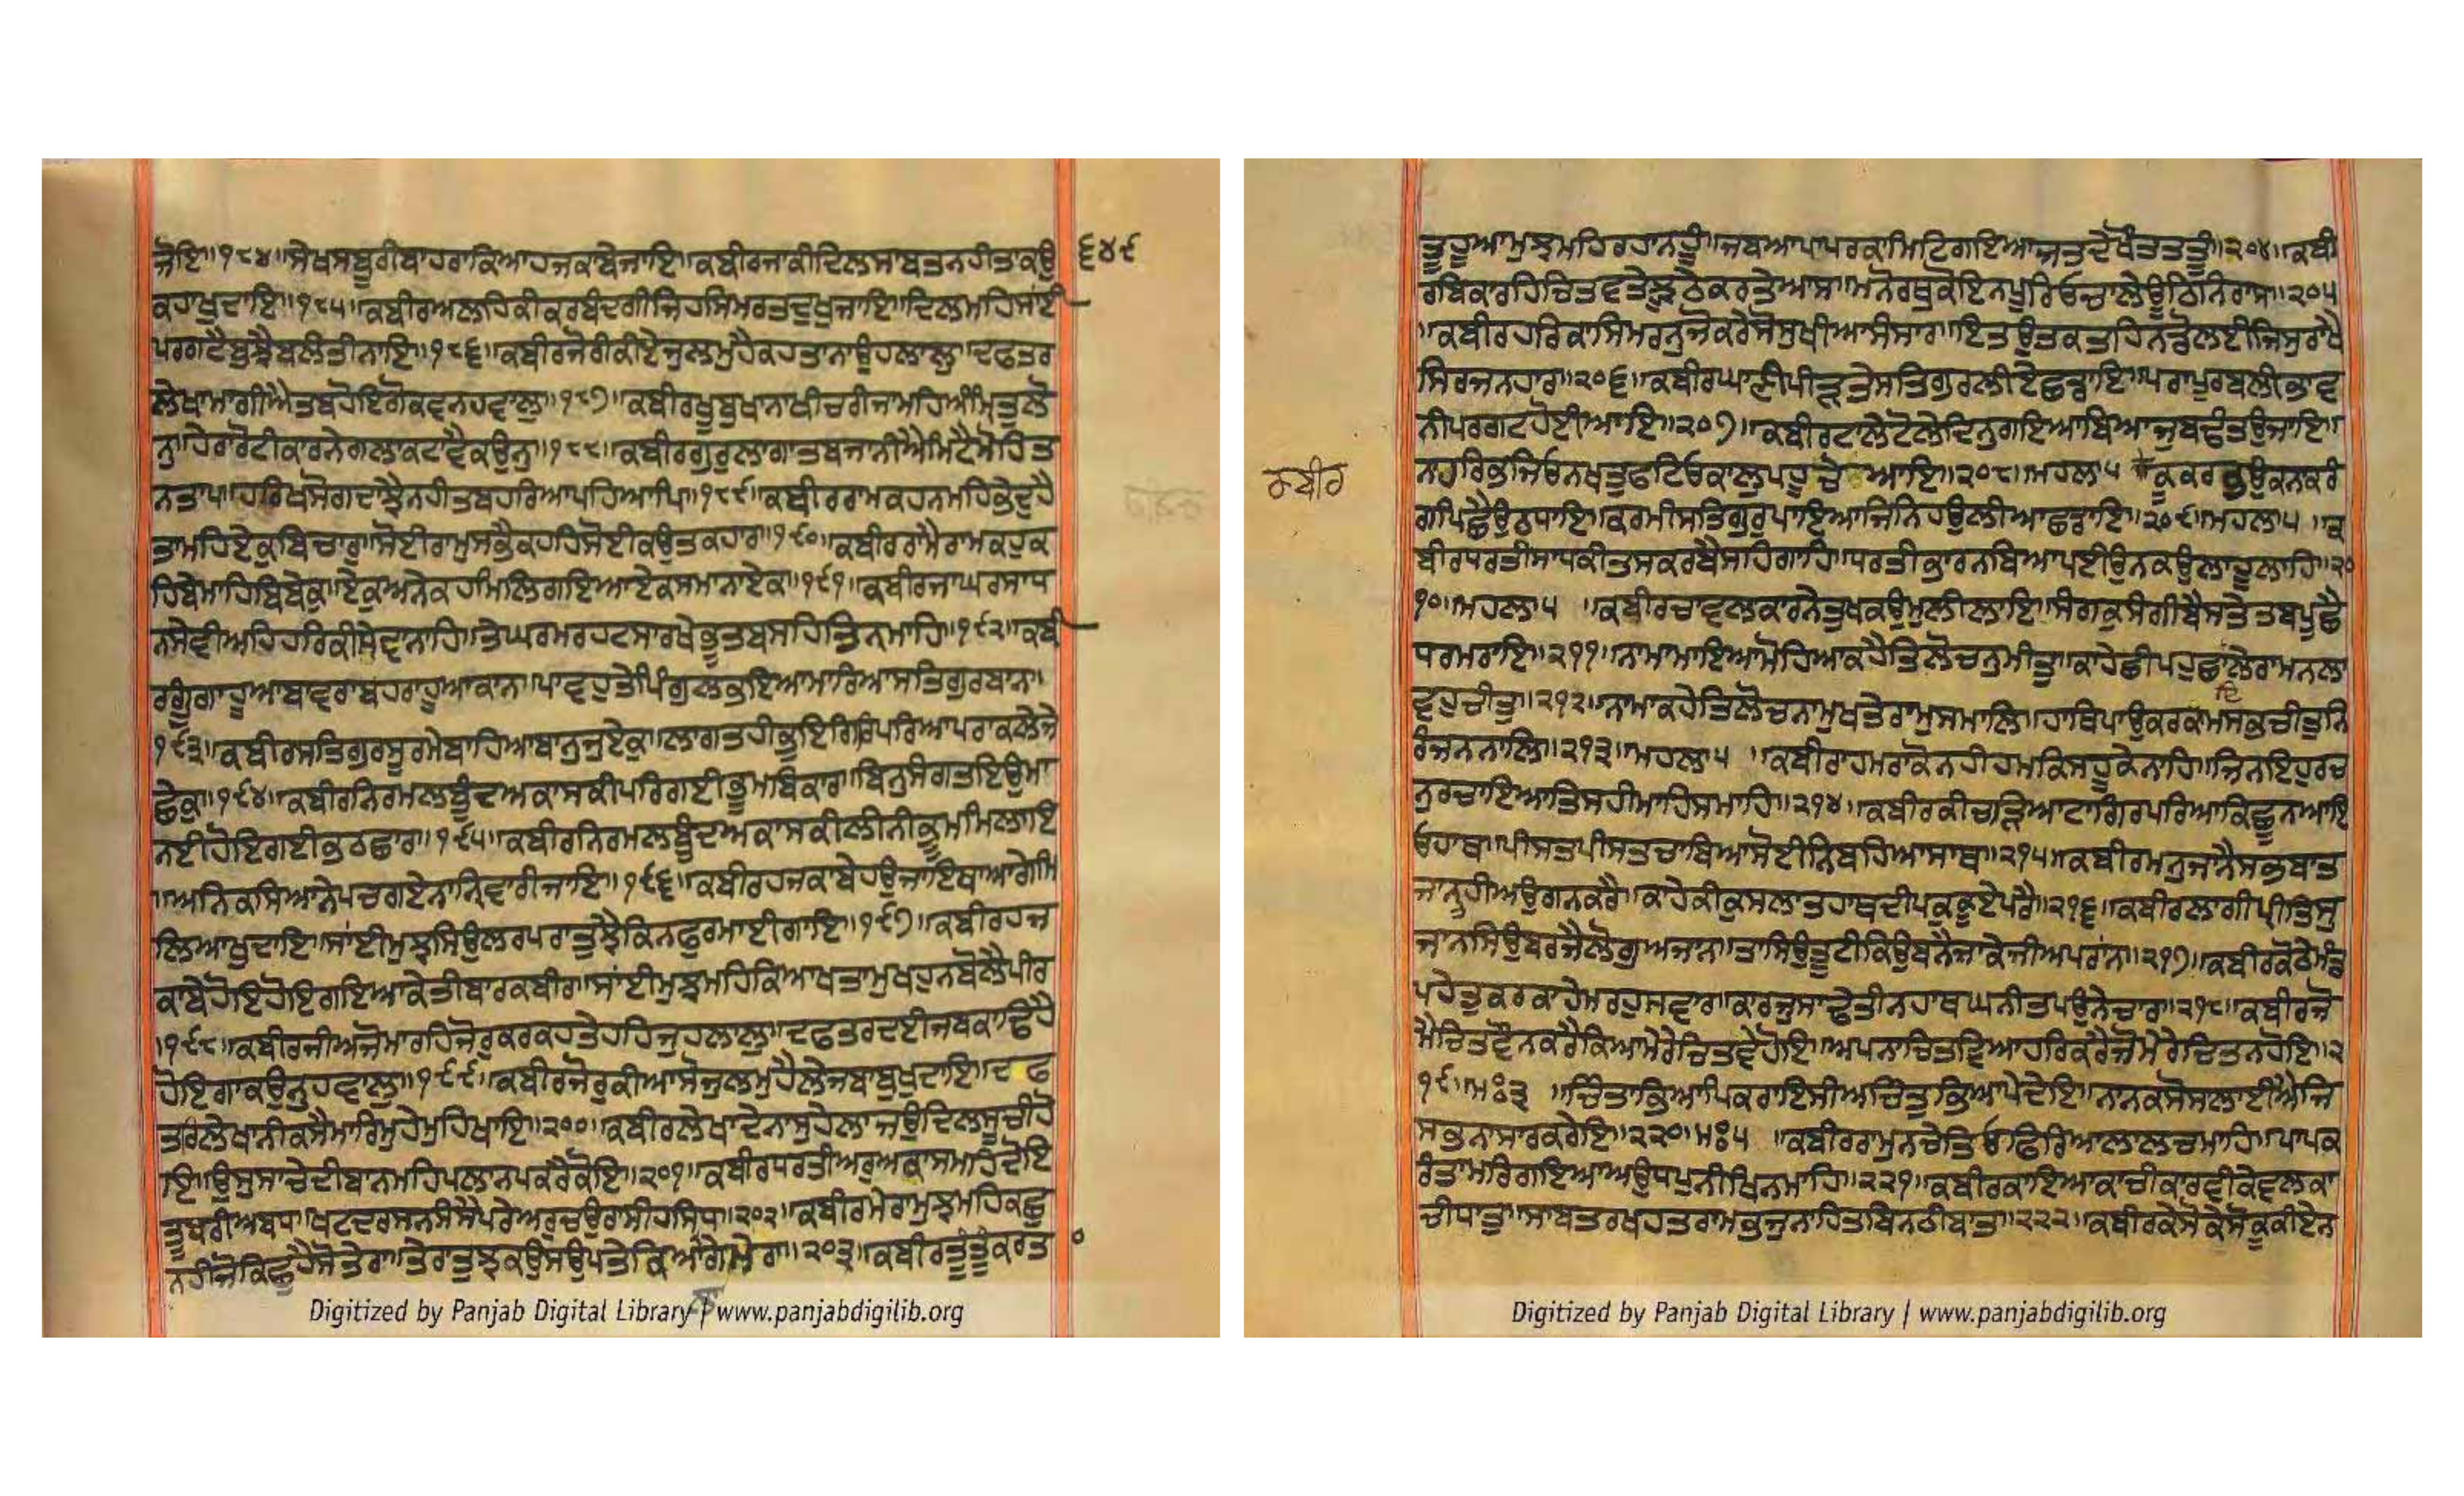 ਜੋਇ॥੧੮੪॥ਸੇਖਸਬੂਰੀਬਾਹਰਾਕਿਆਹਜਕਾਬੇਜਾਇ॥ਕਬੀਰਜਾਕੀਦਿਲਸਾਬਤਨਹੀਤਾਕਉ
੬੪੯
ਕਹਾਖੁਦਾਇ॥੧੮੫॥ਕਬੀਰਅਲਹਿਕੀਕਰਬੰਦਗੀਜਿਹਸਿਮਰਤਦੁਖੁਜਾਇ॥ਦਿਲਮਹਿਸਾਂਈ
ਪਰਗਟੈਬੁਝੈਬਲੰਤੀਨਾਇ॥੧੮੬॥ਕਬੀਰਜੋਰੀਕੀਏਜੁਲਮੁਹੈਕਹਤਾਨਾਉਹਲਾਲੁ॥ਦਫਤਰ
ਲੇਖਾਮਾਂਗੀਐਤਬਹੋਇਗੋਕਵਨਹਵਾਲੁ॥੧੮੭॥ਕਬੀਰਖੂਬੁਖਾਨਾਖੀਚਰੀਜਾਮਹਿਅੰਮ੍ਰਿਤੁਲੋ
ਨੁ॥ਹੇਰਾਰੋਟੀਕਾਰਨੇਗਲਾਕਟਾਵੈਕਉਨੁ॥੧੮੮॥ਕਬੀਰਗੁਰੁਲਾਗਾਤਬਜਾਨੀਐਮਿਟੈਮੋਹਿਤ
ਨਤਾਪ॥ਹਰਿਖਸੋਗਦਾਝੈਨਹੀਤਬਹਰਿਆਪਹਿਆਪਿ॥੧੮੯॥ਕਬੀਰਰਾਮਕਹਨਮਹਿਭੇਦੁਹੈ
ਤਾਮਹਿਏਕੁਬਿਚਾਰੁ॥ਸੋਈਰਾਮੁਸਭੈਕਹਹਿਸੋਈਕਉਤਕਹਾਰ॥੧੯੦॥ਕਬੀਰਰਾਮੈਰਾਮਕਹੁਕ
ਹਿਬੇਮਾਹਿਬਿਬੇਕੁ॥ਏਕੁਅਨੇਕਹਮਿਲਿਗਇਆਏਕਸਮਾਨਾਏਕ॥੧੯੧॥ਕਬੀਰਜਾਘਰਸਾਧ
ਨਸੇਵੀਅਹਿਹਰਿਕੀਸੇਵਾਨਾਹਿ॥ਤੇਘਰਮਰਹਟਸਾਰਖੇਭੂਤਬਸਹਿਤਿਨਮਾਹਿ॥੧੯੨॥ਕਬੀ
ਰਗੂੰਗਾਹੂਆਬਾਵਰਾਬਹਰਾਹੂਆਕਾਨ॥ਪਾਵਹੁਤੇਪਿੰਗੁਲਭਇਆਮਾਰਿਆਸਤਿਗੁਰਬਾਨ॥
੧੯੩॥ਕਬੀਰਸਤਿਗੁਰਸੂਰਮੇਬਾਹਿਆਬਾਨੁਜੁਏਕੁ॥ਲਾਗਤਹੀਭੁਇਗਿਰਿਪਰਿਆਪਰਾਕਲੇਜੇ
ਛੇਕੁ॥੧੯੪॥ਕਬੀਰਨਿਰਮਲਬੂੰਦਅਕਾਸਕੀਪਰਿਗਈਭੂਮਬਿਕਾਰ॥ਬਿਨੁਸੰਗਤਇਉਮਾ
ਨਈਹੋਇਗਈਭਠਛਾਰ॥੧੯੫॥ਕਬੀਰਨਿਰਮਲਬੂੰਦਅਕਾਸਕੀਲੀਨੀਭੂਮਮਿਲਾਇ
॥ਅਨਿਕਸਿਆਨੇਪਚਗਏਨਾਨਿਵਾਰੀਜਾਇ॥੧੯੬॥ਕਬੀਰਹਜਕਾਬੇਹਉਜਾਇਥਾਆਗੇਮਿ
ਲਿਆਖੁਦਾਇ॥ਸਾਂਈਮੁਝਸਿਉਲਰਪਰਾਤੁਝੈਕਿਨਫੁਰਮਾਈਗਾਇ॥੧੯੭॥ਕਬੀਰਹਜ
ਕਾਬੇਹੋਇਹੋਇਗਇਆਕੇਤੀਬਾਰਕਬੀਰ॥ਸਾਂਈਮੁਝਮਹਿਕਿਆਖਤਾਮੁਖਹੁਨਬੋਲੈਪੀਰ
॥੧੯੮॥ਕਬੀਰਜੀਅਜੋਮਾਰਹਿਜੋਰੁਕਰਕਹਤੇਹਹਿਜੁਹਲਾਲੁ॥ਦਫਤਰਦਈਜਬਕਾਢਿਹੈ
ਹੋਇਗਾਕਉਨੁਹਵਾਲੁ॥੧੯੯॥ਕਬੀਰਜੋਰੁਕੀਆਸੋਜੁਲਮੁਹੈਲੇਜਬਾਬੁਖੁਦਾਇ॥ਦਫ
ਤਰਿਲੇਖਾਨੀਕਸੈਮਾਰਿਮੁਹੇਮੁਹਿਖਾਇ॥੨੦੦॥ਕਬੀਰਲੇਖਾਦੇਨਾਸੁਹੇਲਾਜਉਦਿਲਸੂਚੀਹੋ
ਇ॥ਉਸੁਸਾਚੇਦੀਬਾਨਮਹਿਪਲਾਨਪਕਰੈਕੋਇ॥੨੦੧॥ਕਬੀਰਧਰਤੀਅਰੁਅਕਾਸਮਹਿਦੋਇ
ਤੂਬਰੀਅਬਧ॥ਖਟਦਰਸਨਸੰਸੈਪਰੇਅਰੁਚਉਰਾਸੀਹਸਿਧ॥੨੦੨॥ਕਬੀਰਮੇਰਾਮੁਝਮਹਿਕਛੁ
ਨਹੀਜੋਕਿਛੁਹੈਸੋਤੇਰਾ॥ਤੇਰਾਤੁਝਕਉਸਉਪਤੇਕਿਆਲਾਗੈਮੇਰਾ॥੨੦੩॥ਕਬੀਰਤੂੰਤੂੰਕਰਤ
Digitized by Panjab Digital Library | www.panjabdigilib.org
ਤੂਹੂਆਮੁਝਮਹਿਰਹਾਨਹੂੰ॥ਜਬਆਪਾਪਰਕਾਮਿਟਿਗਇਆਜਤਦੇਖਉਤਤਤੂੰ॥੨੦੪॥ਕਬੀ
ਰਬਿਕਾਰਹਿਚਿਤਵਤੇਝੂਠੇਕਰਤੇਆਸ॥ਮਨੋਰਥੁਕੋਇਨਪੂਰਿਓਚਾਲੇਊਠਿਨਿਰਾਸ॥੨੦੫
॥ਕਬੀਰਹਰਿਕਾਸਿਮਰਨੁਜੋਕਰੇਸੋਸੁਖੀਆਸੰਸਾਰ॥ਇਤਉਤਕਤਹਿਨਡੋਲਈਜਿਸੁਰਾਖੈ
ਸਿਰਜਨਹਾਰ॥੨੦੬॥ਕਬੀਰਘਾਣੀਪੀੜਤੇਸਤਿਗੁਰਲੀਏਛਡਾਇ॥ਪਰਾਪੂਰਬਲੀਭਾਵ
ਨੀਪਰਗਟਹੋਈਆਇ॥੨੦੭॥ਕਬੀਰਟਾਲੈਟੋਲੇਦਿਨੁਗਇਆਬਿਆਜੁਬਢੰਤਉਜਾਇ॥
ਕਬੀਰ
ਨਾਹਰਿਭਜਿਓਨਖਤੁਫਟਿਓਕਾਲੁਪਹੂਚੋਆਇ॥੨੦੮॥ਮਹਲਾ੫ਕੂਕਰਭਉਕਨਾਕਰੰ
ਗਪਿਛੈਉਠਧਾਇ॥ਕਰਮੀਸਤਿਗੁਰੁਪਾਇਆਜਿਨਿਹਉਲੀਆਛਡਾਇ॥੨੦੯॥ਮਹਲਾ੫॥ਕ
ਬੀਰਧਰਤੀਸਾਧਕੀਤਸਕਰਬੈਸਹਿਗਾਹਿ॥ਧਰਤੀਭਾਰਨਬਿਆਪਈਉਨਕਉਲਾਹੂਲਾਹਿ॥੨੦
੧੦॥ਮਹਲਾ੫॥ਕਬੀਰਚਾਵਲਕਾਰਨੇਤੁਖਕਉਮੁਲੀਲਾਇ॥ਸੰਗਕੁਸੰਗੀਬੈਸਤੇਤਬਪੂਛੈ
ਧਰਮਰਾਇ॥੨੧੧॥ਨਾਮਾਮਾਇਆਮੋਹਿਆਕਹੈਤਿਲੋਚਨੁਮੀਤੁ॥ਕਾਹੇਛੀਪਹੁਛਾਇਲੈਰਾਮਨਲਾ
ਵਹੁਚੀਤੁ॥੨੧੨॥ਨਾਮਾਕਹੇਤਿਲੋਚਨਾਮੁਖਤੇਰਾਮੁਸਮਾਲਿ॥ਹਾਥਿਪਾਉਕਰਕਾਮਸਭਚੀਤੁਨਿ
ਰੰਜਨਨਾਲਿ॥੨੧੩॥ਮਹਲਾ੫॥ਕਬੀਰਾਹਮਰਾਕੋਨਹੀਹਮਕਿਸਹੂਕੇਨਾਹਿ॥ਜਿਨਇਹੁਰਚ
ਨੁਰਚਾਇਆਤਿਸਹੀਮਾਹਿਸਮਾਹਿ॥੨੧੪॥ਕਬੀਰਕੀਚੜਿਆਟਾਗਿਰਪਰਿਆਕਿਛੂਨਆਇ
ਓਹਾਥ॥ਪੀਸਤਪੀਸਤਚਾਬਿਆਸੋਈਨਿਬਹਿਆਸਾਥ॥੨੧੫॥ਕਬੀਰਮਨੁਜਾਨੈਸਭਬਾਤ
ਜਾਨਤਹੀਅਉਗਨਕਰੈ॥ਕਾਹੇਕੀਕੁਸਲਾਤਹਾਥਦੀਪਕੁਕੂਏਪਰੈ॥੨੧੬॥ਕਬੀਰਲਾਗੀਪ੍ਰੀਤਿਸੁ
ਜਾਨਸਿਉਬਰਜੈਲੋਗੁਅਜਾਨ॥ਤਾਸਿਉਤੂਟੀਕਿਉਬਨੈਜਾਕੇਜੀਅਪਰਾਨ॥੨੧੭॥ਕਬੀਰਕੋਠੇਮੰਡ
ਪਹੇਤੁਕਰਕਾਹੇਮਰਹੁਸਵਾਰ॥ਕਾਰਜੁਸਾਢੇਤੀਨਹਾਥਘਨੀਤਪਉਨੇਚਾਰ॥੨੧੮॥ਕਬੀਰਜੋ
ਮੈਚਿਤਵੌਨਕਰੈਕਿਆਮੇਰੇਚਿਤਵੇਹੋਇ॥ਅਪਨਾਚਿਤਵਿਆਹਰਿਕਰੈਜੋਮੇਰੇਚਿਤਨਹੋਇ॥੨
੧੯॥ਮਃ੩॥ਚਿੰਤਾਭਿਆਪਿਕਰਾਇਸੀਅਚਿੰਤੁਭਿਆਪੇਦੇਇ॥ਨਾਨਕਸੋਸਲਾਹੀਐਜਿ
ਸਭਨਾਸਾਰਕਰੇਇ॥੨੨੦॥ਮਃ੫॥ਕਬੀਰਰਾਮੁਨਚੇਤਿਓਫਿਰਿਆਲਾਲਚਮਾਹਿ॥ਪਾਪਕ
ਰੰਤਾਮਰਿਗਇਆਅਉਧਪੁਨੀਖਿਨਮਾਹਿ॥੨੨੧॥ਕਬੀਰਕਾਇਆਕਾਚੀਕਾਰਵੀਕੇਵਲਕਾ
ਚੀਧਾਤੁ॥ਸਾਬਤਰਖਹਤਰਾਮਭਜੁਨਾਹਿਤਬਿਨਠੀਬਾਤ॥੨੨੨॥ਕਬੀਰਕੇਸੋਕੇਸੋਕੂਕੀਏਨ
Digitized by Panjab Digital Library | www.panjabdigilib.org